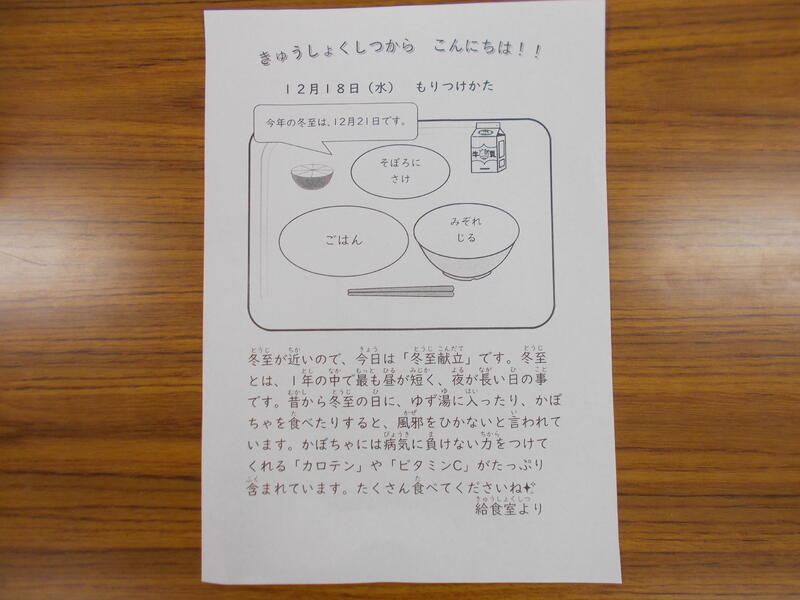 きゅうしょくしつから　こんにちは！！
１２月１８日（水）　もりつけかた
今年の冬至は、12月21日です。
牛乳
そぼろに
さけ
ごはん
みぞれ
じる
冬至が近いので、今日は「冬至献立」です。冬至
とは、１年の中で最も昼が短く、夜が長い日の事
です。昔から冬至の日に、ゆず湯に入ったり、かぼ
ちゃを食べたりすると、風邪をひかないと言われて
います。かぼちゃには病気に負けない力をつけて
くれる「カロテン」や「ビタミンC」がたっぷり
含まれています。たくさん食べてくださいね✨
給食室より